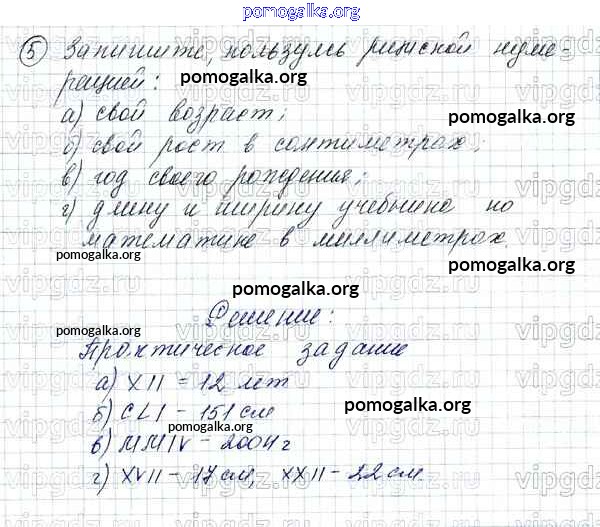 pomogalka.org
⑤ Запишите, пользуясь римской нуме-
рацией:
pomogalka.org
а) свой возраст;
б) свой рост в сантиметрах;
pomogalka.org
в) год своего рождения;
г) длину и ширину учебника по
математике в миллиметрах.
pomogalka.org
pomogalka.org
pomogalka.org
Решение:
pomogalka.org
Практическое задание
а) XII = 12 лет
б) CLI - 151 см
pomogalka.org
в) MMIV - 2004 г
г) XVII - 17 см, XXII - 22 см.
pomogalka.org